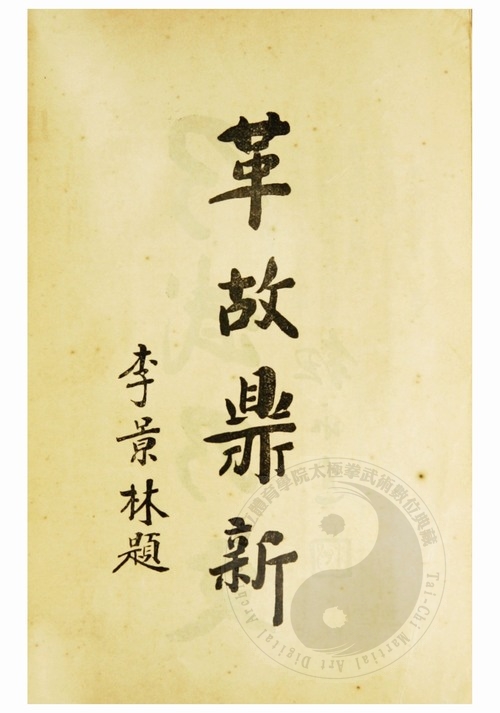 革故鼎新
李景林題
立體育學院太極拳武術數位典藏
Tai-Chi Martial Art Digital Arch